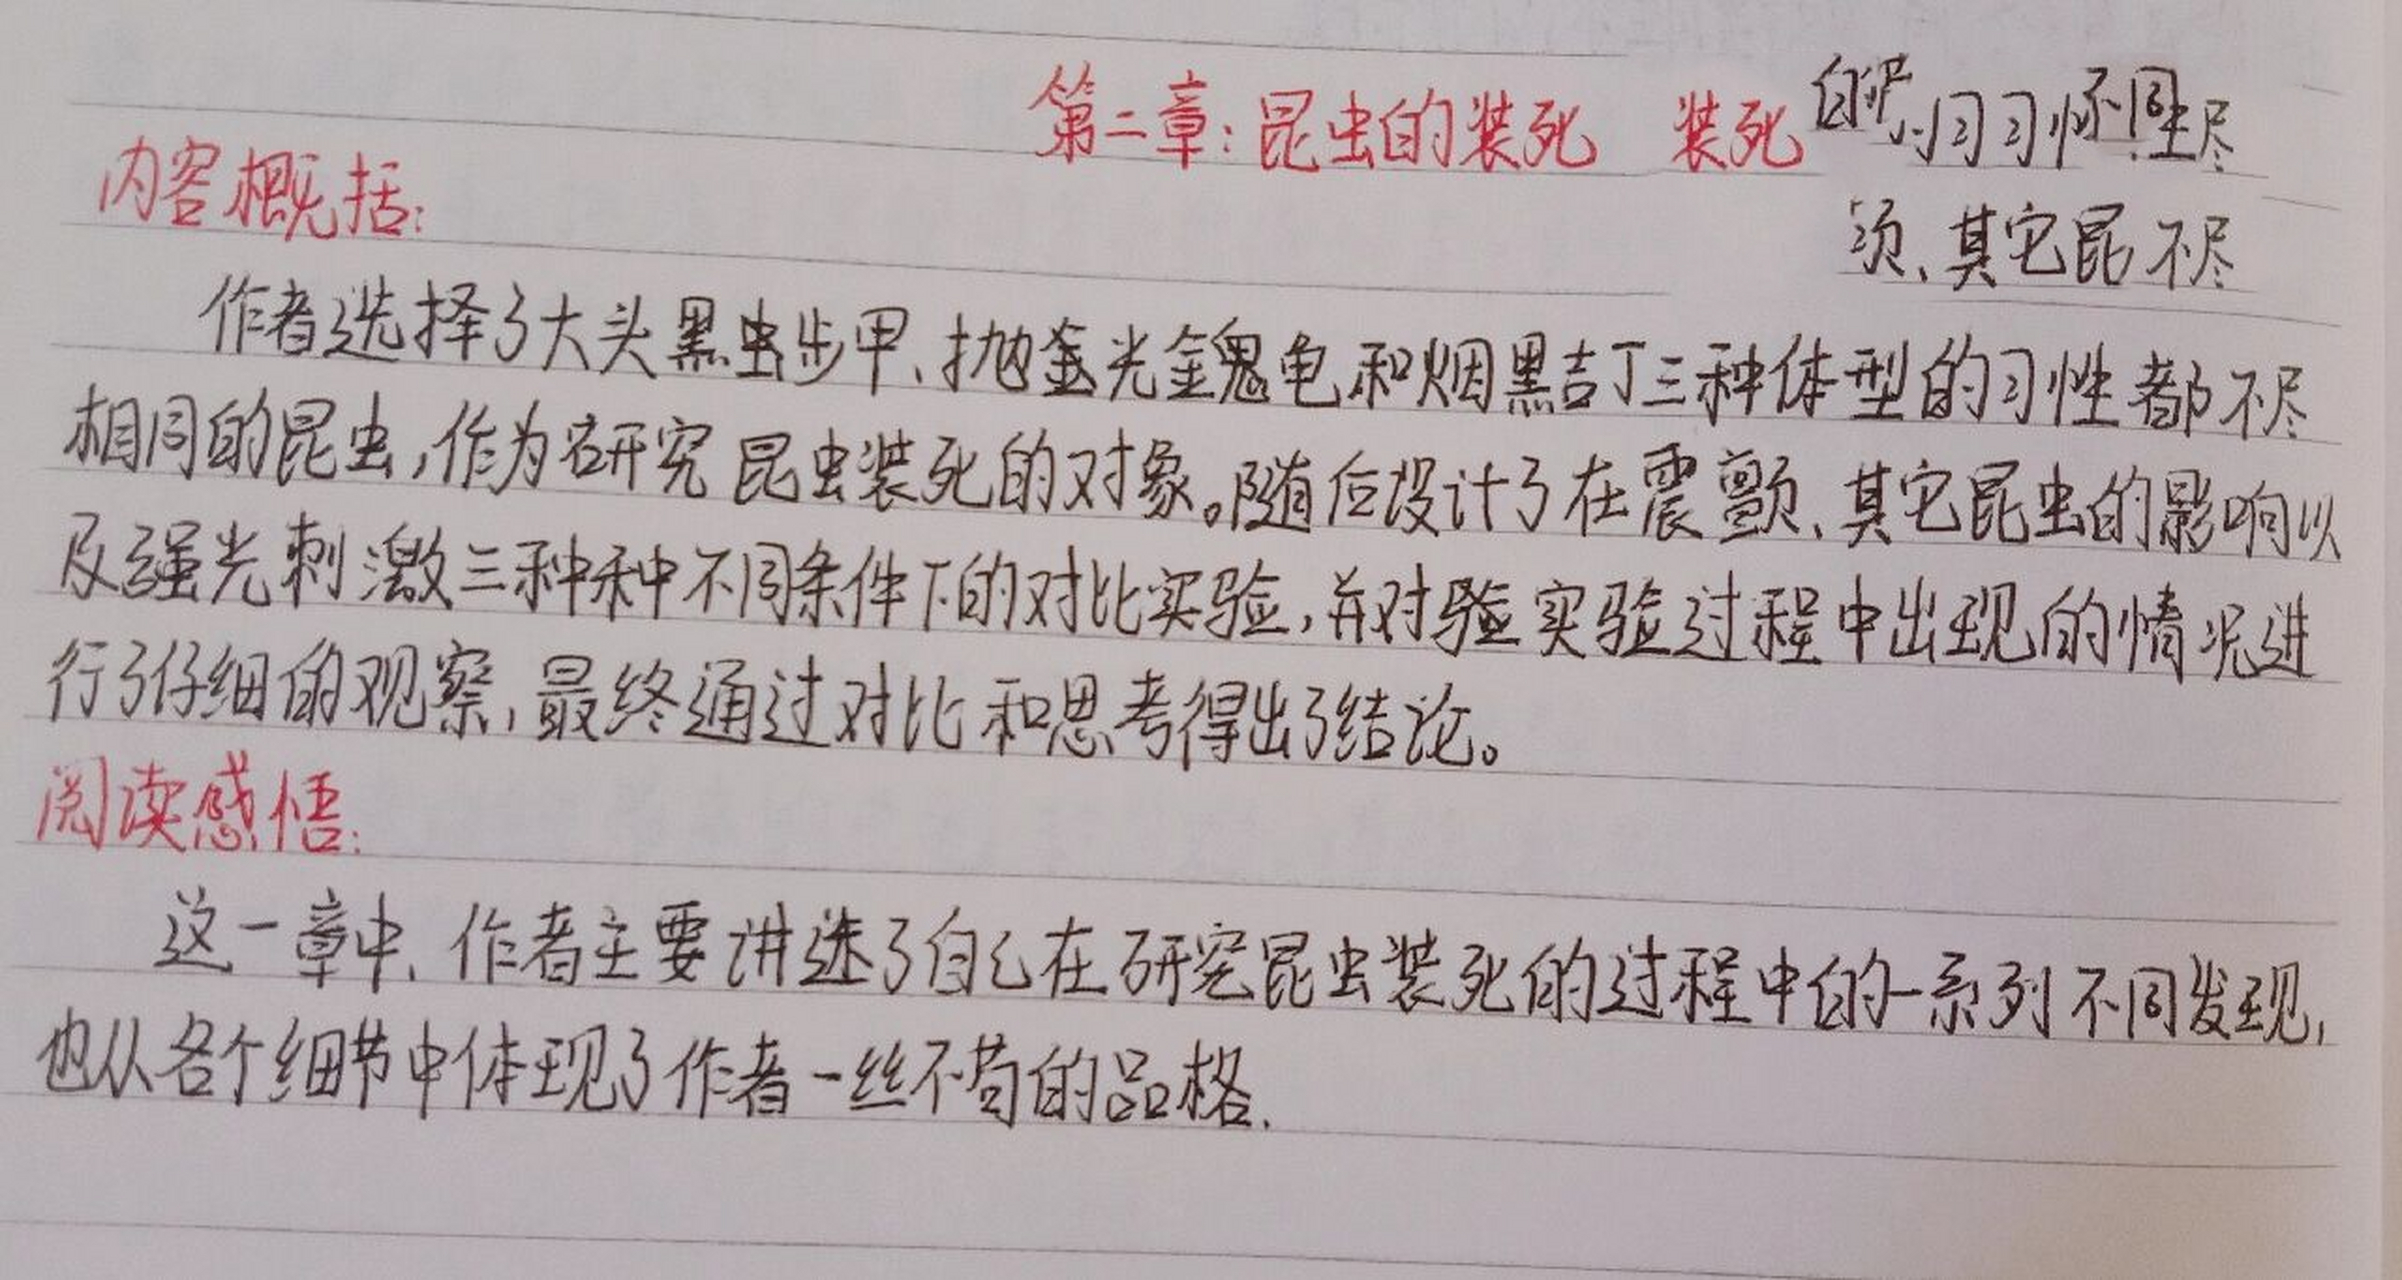 第二章:昆虫的装死 装死
其它昆不尽
内容概括:
作者选择了大头黑虫步甲、抛金光金鬼龟和烟黑吉丁三种体型的习性都不尽
相同的昆虫,作为研究昆虫装死的对象。随后设计了在震颤、其它昆虫的影响以
及强光刺激三种种不同条件下的对比实验,并对验实验过程中出现的情况进
行了仔细的观察,最终通过对比和思考得出了结论。
阅读感悟:
这一章中,作者主要讲述了自己在研究昆虫装死的过程中的一系列不同发现,
也从各个细节中体现了作者一丝不苟的品格.